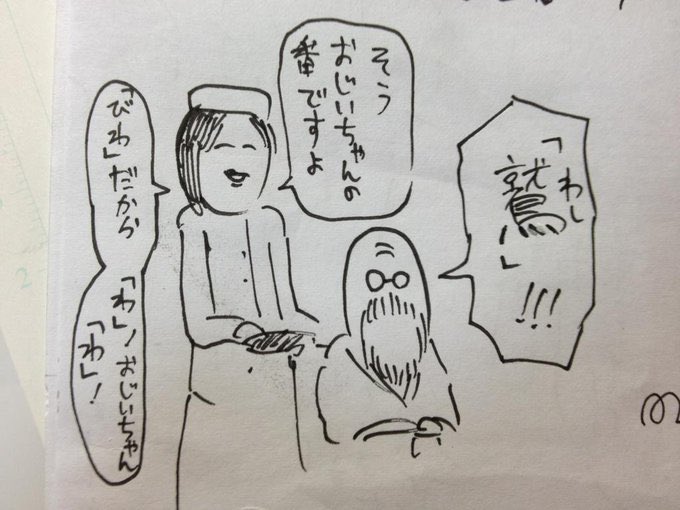 そう
おじいちゃんの
番ですよ
「びわ」だから
「わ」!おじいちゃん
「わ」!
わし
「鷲!」
!!!